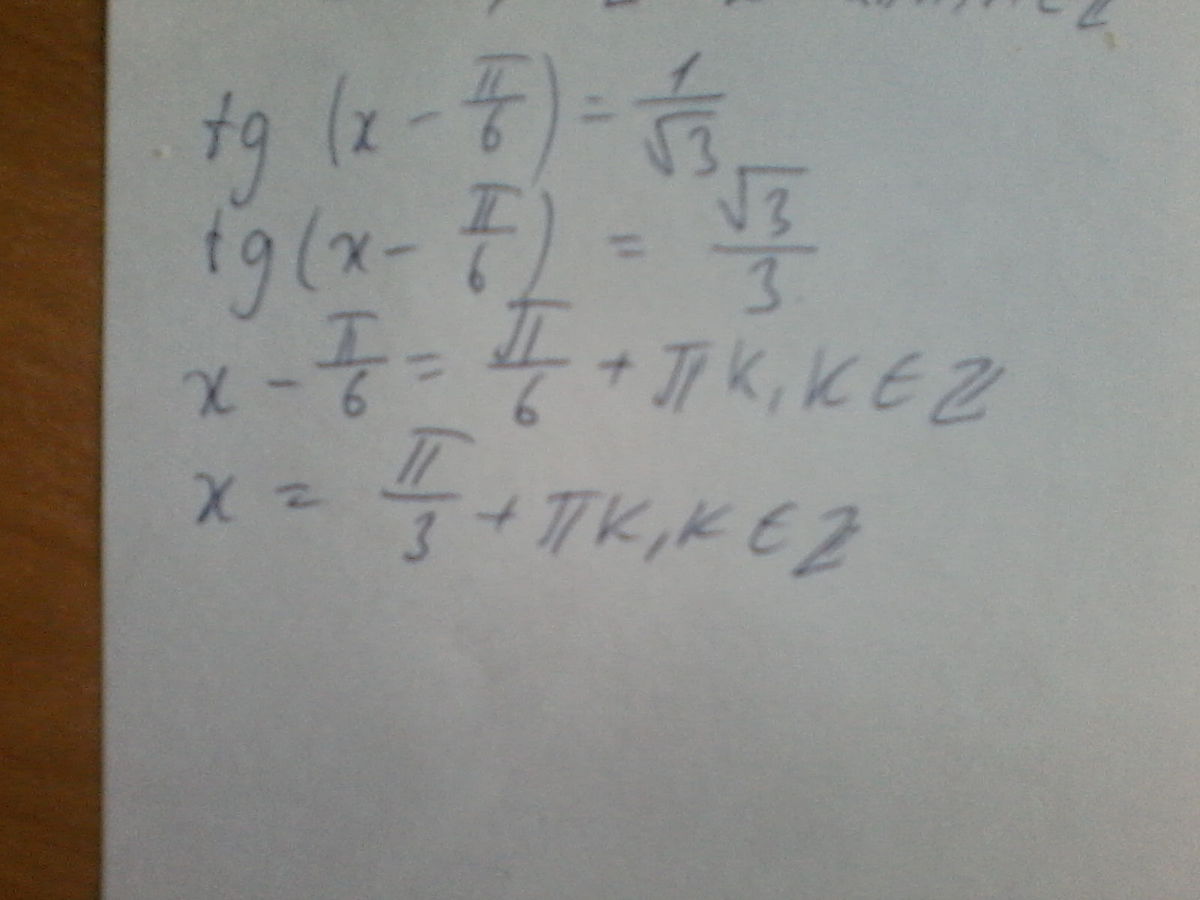 tg (x - π/6) = 1/√3
tg (x - π/6) = √3/3
x - π/6 = π/6 + πk, k ∈ Z
x = π/3 + πk, k ∈ Z